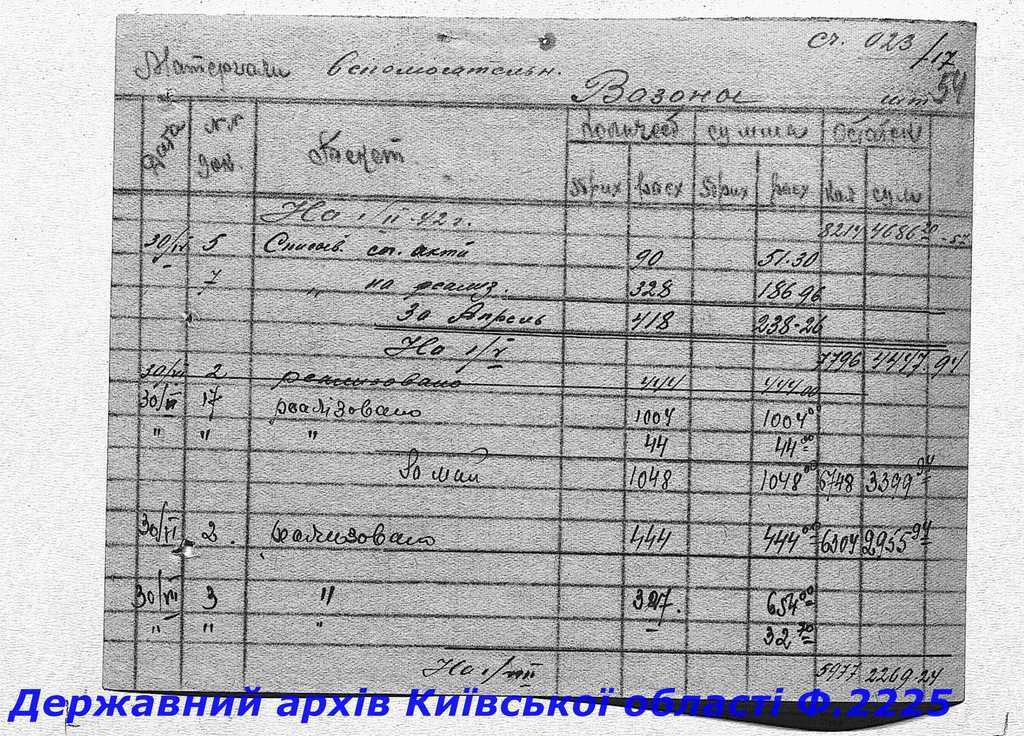 сч. 023/17
Материали вспомогательн.
Вазоны шт 54
Дата №№ док. Текст количест сумма остаток
прих расх прих расх кол сум
На 1/IV-42 г. 8214 4686 20
30/IV 5 Списов. сп. акти 90 51-30
7 " на реализ. 328 186 96
За Апрель 418 238-26
На 1/V 7796 4447.94
2 реализовано 444 444 00
30/V 17 реалізовано 1004 1004 00
" " " 44 44 00
За май 1048 1048 00 6748 3399 94
30/VI 2. реализовано 444 444 00 6304 2955 94
30/VII 3 " 327. 654 00
" " " – 32 70
На 1/VIII 5977 2269.24
Державний архів Київської області Ф.2225